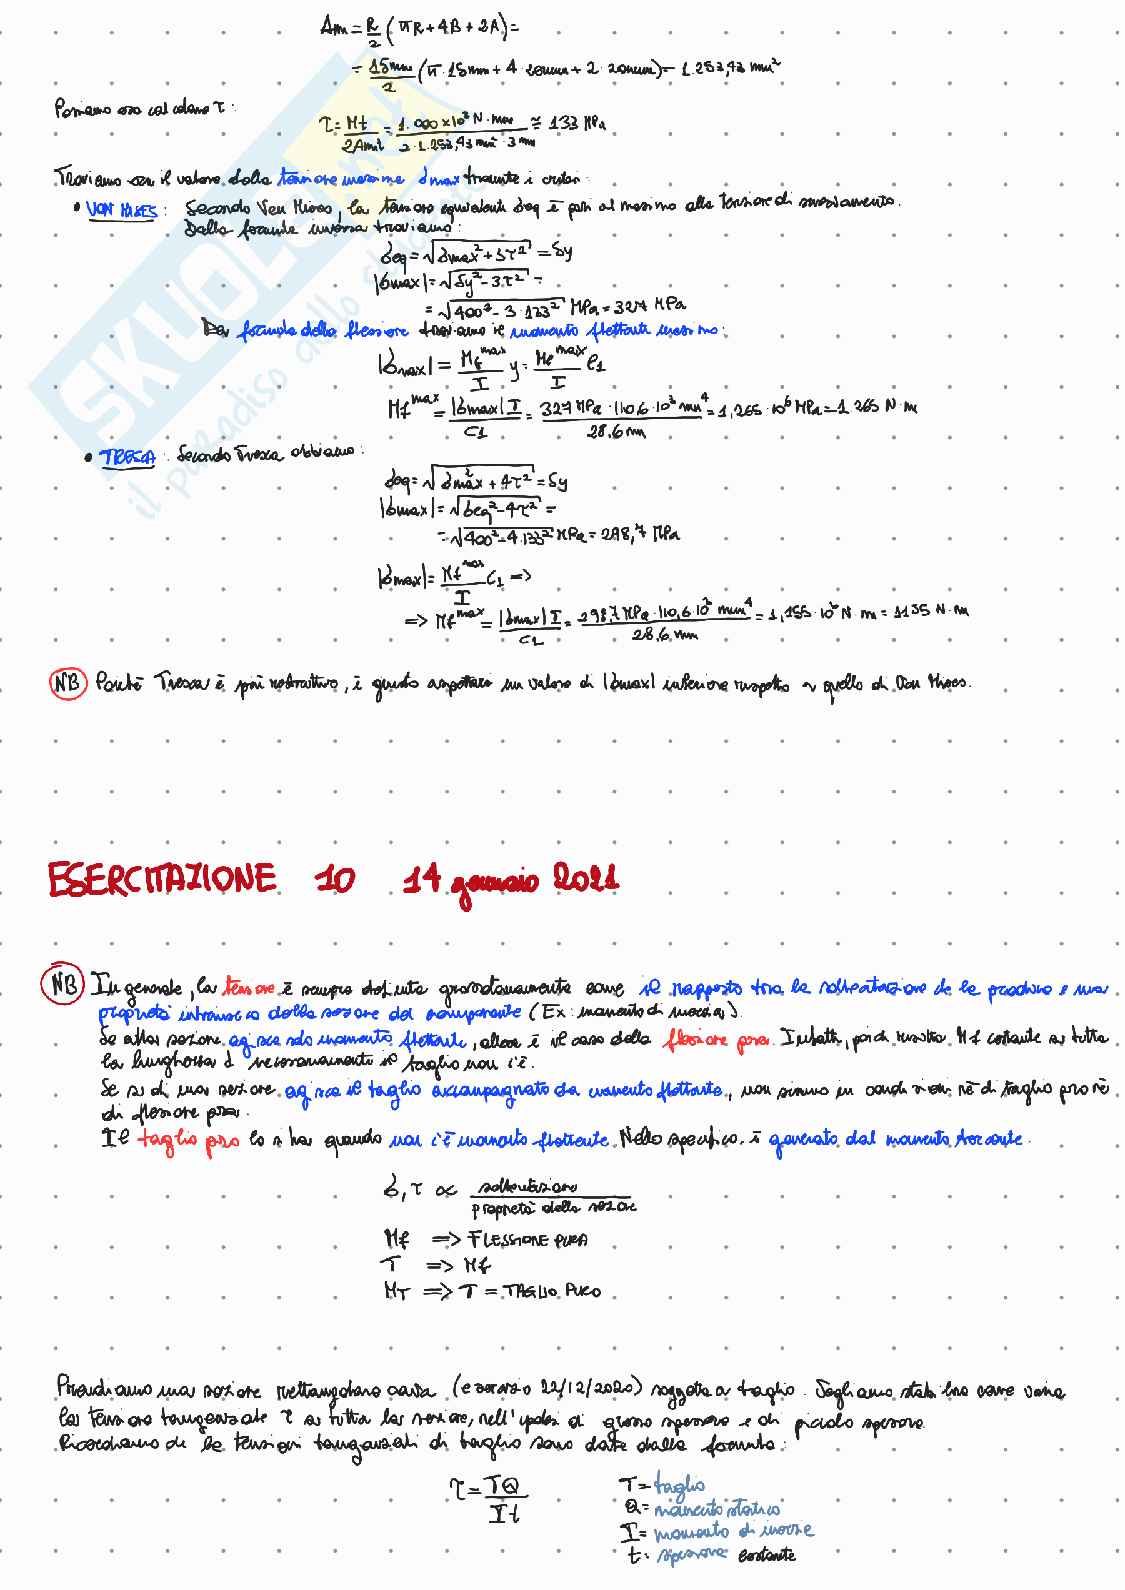 Am = R/2 (πR + 4B + 2A) =
= 15mm/2 (π·15mm + 4·20mm + 2·20mm) = 1.253,43 mm²
Possiamo ora calcolare τ:
τ = Mt/2Amt = 1.000×10³ N·mm/2·1.253,43 mm²·3mm ≅ 133 MPa
Troviamo ora il valore della tensione massima σmax tramite i criteri
• VON MISES: Secondo Von Mises, la tensione equivalente σeq è pari al massimo alla tensione di snervamento.
Dalla formula inversa troviamo:
σeq = √σmax² + 3τ² = Sy
|σmax| = √Sy² - 3τ² =
= √400² - 3·133² MPa = 327 MPa
Dalla formula della flessione troviamo il momento flettente massimo:
|σmax| = Mf^max/I y = Mf^max/I C1
Mf^max = |σmax| I/C1 = 327 MPa·110,6·10³ mm⁴/28.6 mm = 1,265·10⁶ MPa = 1.265 N·m
• TRESCA: Secondo Tresca abbiamo:
σeq = √σmax² + 4τ² = Sy
|σmax| = √σeq² - 4τ² =
= √400² - 4·133² MPa = 298,7 MPa
|σmax| = Mf^max/I C1 =>
=> Mf^max = |σmax| I/C1 = 298,7 MPa·110,6·10³ mm⁴/28,6 mm = 1,155·10⁶ N·m = 1135 N·m
NB Poiché Tresca è più restrittivo, è giusto aspettarsi un valore di |σmax| inferiore rispetto a quello di Von Mises.
ESERCITAZIONE 10 14 gennaio 2021
NB In generale, la tensione è sempre definita grossolanamente come il rapporto tra la sollecitazione che la produce e una
proprietà intrinseca della sezione del componente (Ex: momento di inerzia).
Se sulla sezione agisce solo momento flettente, allora è il caso della flessione pura. Infatti, poiché risulta Mf costante su tutta
la lunghezza necessariamente il taglio non c'è.
Se su di una sezione agisce il taglio accompagnato da momento flettente, non siamo in condizioni né di taglio puro né
di flessione pura.
Il taglio puro lo si ha quando non c'è momento flettente. Nello specifico, è generato dal momento torcente.
σ, τ ∝ sollecitazione/proprietà della sezione
Mf => FLESSIONE PURA
T => Mf
MT => T = TAGLIO PURO
Prendiamo una sezione rettangolare cava (esercizio 22/12/2020) soggetta a taglio. Vogliamo stabilire come varia
la tensione tangenziale τ su tutta la sezione, nell'ipotesi di grosso spessore e di piccolo spessore.
Ricordiamo che le tensioni tangenziali di taglio sono date dalla formula:
τ = TQ/It
T = taglio
Q = momento statico
I = momento di inerzia
t = spessore costante
SKUOLA.net
il paradiso dello studente